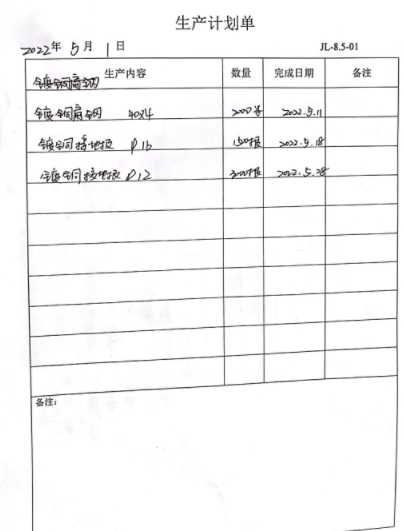 生产计划单
2022年 5月 1日 JL-8.5-01
生产内容 数量 完成日期 备注
镀铜扁钢
镀铜扁钢 40x4 2022.5.11
镀铜接地极 φ16 150根 2022.5.18
镀铜接地极 φ12 200根 2022.5.28
备注: